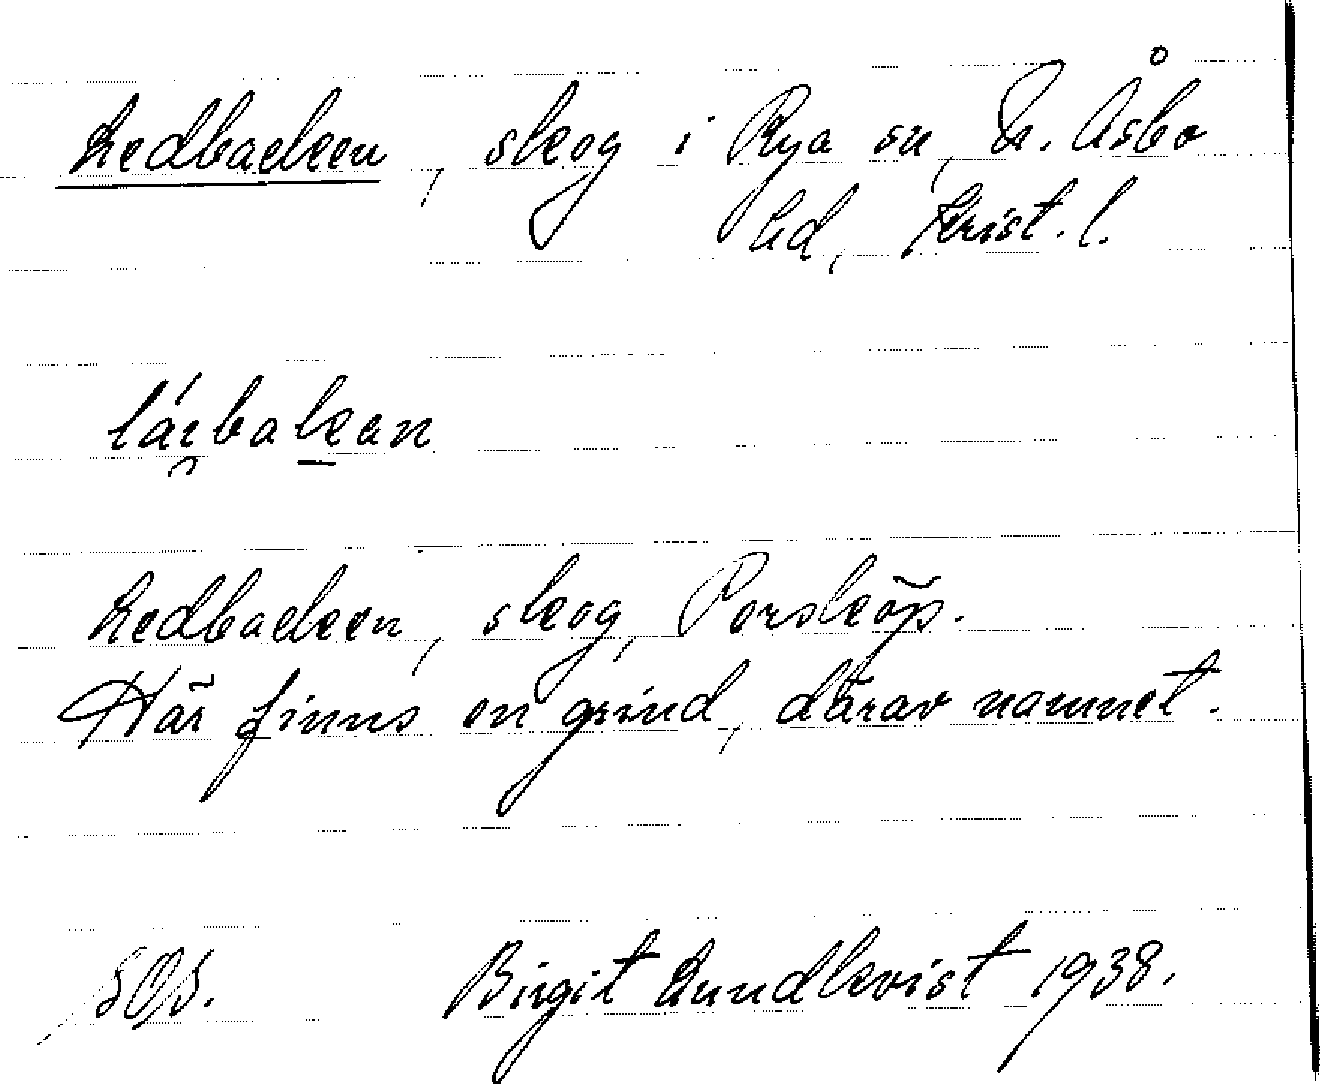 Ledbacken, skog i Rya sn, N. Åsbo
hd, Krist. l.
lárbakan
Ledbacken, skog, Porsköp.
Här finns en grind, därav namnet.
SOS. Birgit Lundkvist 1938.